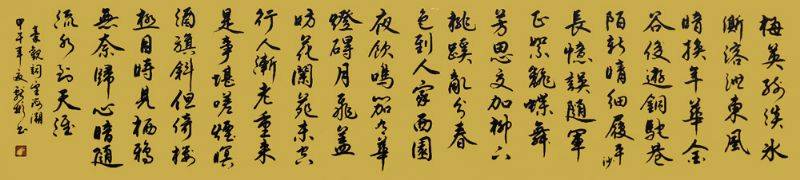 梅英疏淡冰
澌溶洩東風
暗換年華金
谷俊遊銅駝巷
陌新晴細履平沙
長憶誤隨車
正絮翻蝶舞
芳思交加柳下
桃蹊亂分春
色到人家西園
夜飲鳴笳有華
燈礙月飛蓋
妨花蘭苑未空
行人漸老重來
是事堪嗟煙暝
酒旗斜但倚樓
極目時見栖鴉
無奈歸心暗隨
流水到天涯
秦觀詞望海潮
甲午年夏書